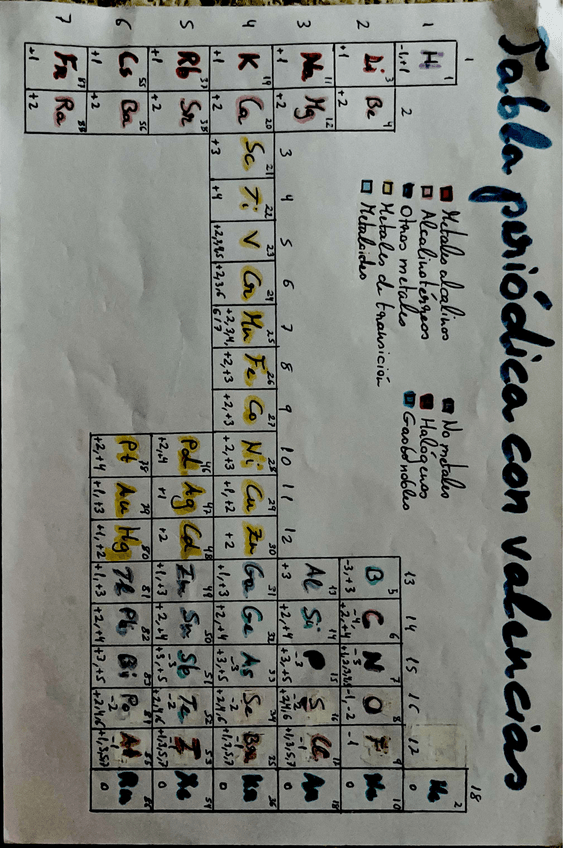 Tabla periódica con valencias
Metales alcalinos
Alcalinotérreos
Otros metales
Metales de transición
Metaloides
No metales
Halógenos
Gases nobles
1 2 3 4 5 6 7 8 9 10 11 12 13 14 15 16 17 18
1 H 1 He 2
-1,+1 0
2 Li 3 Be 4 B 5 C 6 N 7 O 8 F 9 Ne 10
+1 +2 -3,+3 -4 +2,+4 -3 -1,-2 -1 0
3 Na 11 Mg 12 Al 13 Si 14 P 15 S 16 Cl 17 Ar 18
+1 +2 +3 +2,+4 -3 +3,+5 -2 +2,4,6 -1 +1,3,5,7 0
4 K 19 Ca 20 Sc 21 Ti 22 V 23 Cr 24 Mn 25 Fe 26 Co 27 Ni 28 Cu 29 Zn 30 Ga 31 Ge 32 As 33 Se 34 Br 35 Kr 36
+1 +2 +3 +4 +2,3,4,5 +2,3,6 +2,3,4,6,7 +2,+3 +2,+3 +2,+3 +1,+2 +2 +1,+3 +2,+4 -3 +3,+5 -2 +2,4,6 -1 +1,3,5,7 0
5 Rb 37 Sr 38 Pd 46 Ag 47 Cd 48 In 49 Sn 50 Sb 51 Te 52 I 53 Xe 54
+1 +2 +2,4 +1 +2 +1,+3 +2,+4 -3 +3,+5 -2 +2,4,6 -1 +1,3,5,7 0
6 Cs 55 Ba 56 Pt Au 79 Hg 80 Tl 81 Pb 82 Bi 83 Po 84 At 85 Rn 86
+1 +2 +2,+4 +1,+3 +1,+2 +1,+3 +2,+4 +3,+5 -2 +2,4,6 -1 +1,3,5,7 0
7 Fr 87 Ra 88
+1 +2